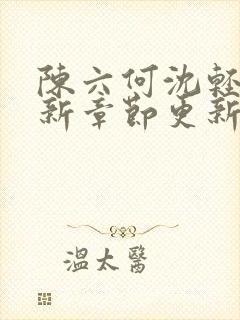 陳六何沈輕
新章節更新
溫太醫